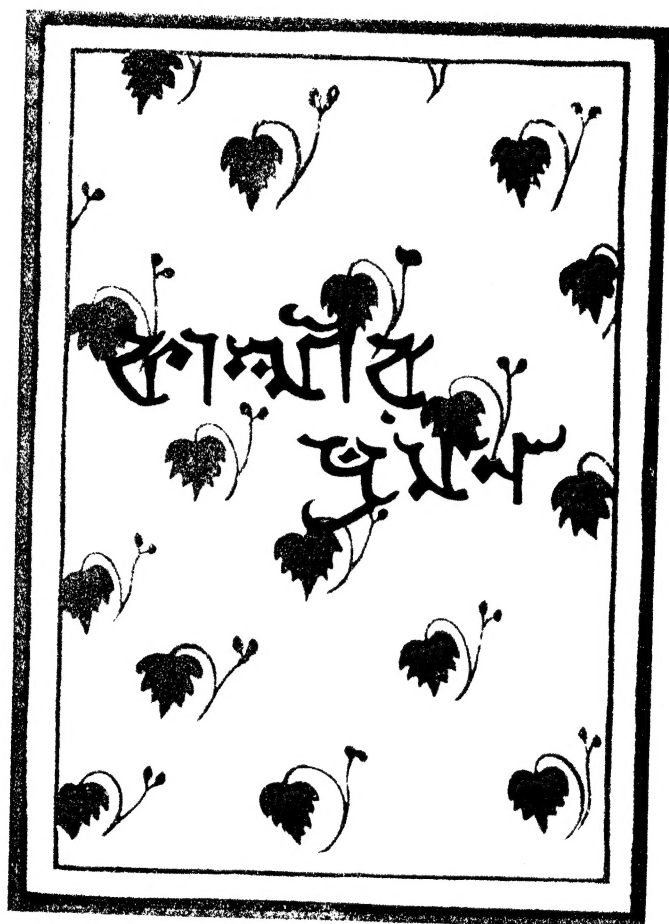 কাশ্মীর
ভ্রমণ